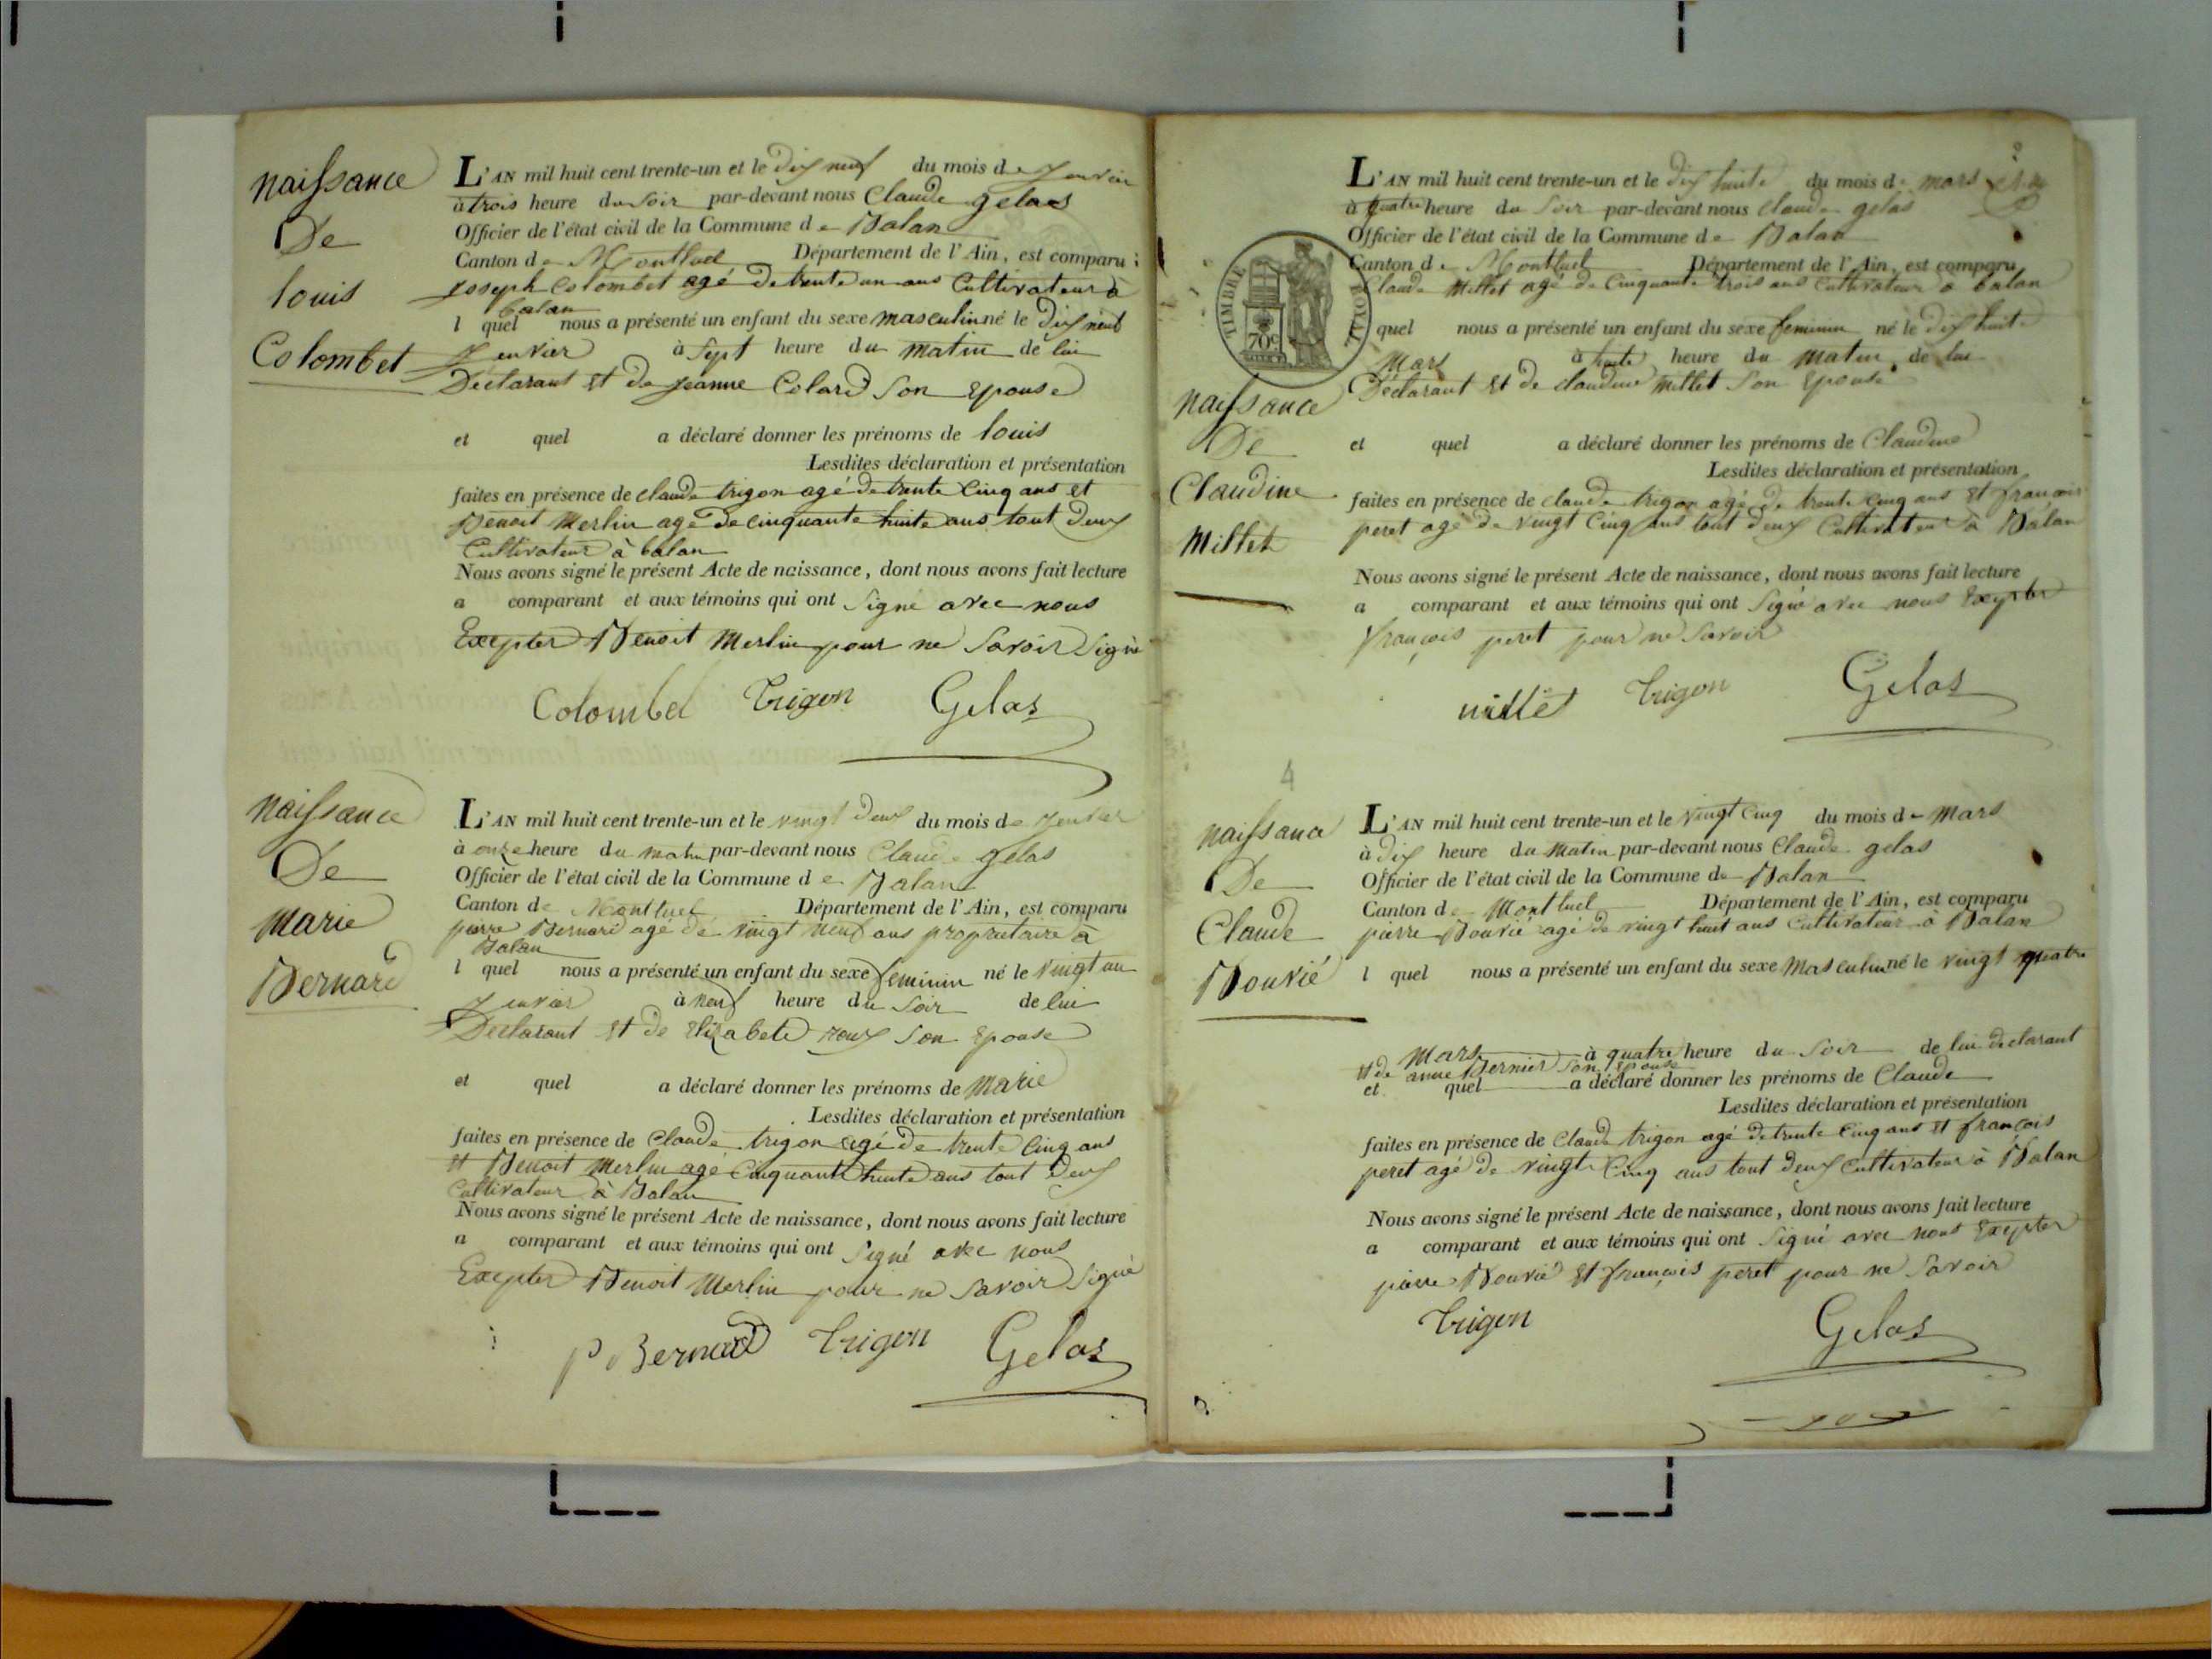 naissance
De
louis
Colombet
L'AN mil huit cent trente-un et le dix neuf du mois de Jenvier
à trois heure du Soir par-devant nous Claude gelas
Officier de l'état civil de la Commune de Balan
Canton de Montluel Département de l'Ain, est comparu
Joseph Colombet agé de trente un ans Cultivateur à
balan
l quel nous a présenté un enfant du sexe masculin né le dix neuf
Jenvier à Sept heure du matin de lui
Déclarant et de jeanne Colard Son Epouse
et quel a déclaré donner les prénoms de louis
Lesdites déclaration et présentation
faites en présence de claude trigon agé de trente Cinq ans et
Benoit Merlin agé de cinquante huite ans tout deux
Cultivateur à balan
Nous avons signé le présent Acte de naissance, dont nous avons fait lecture
a comparant et aux témoins qui ont Signé avec nous
Exepter Benoit Merlin pour ne Savoir Signé
Colombet Trigon Gelas
naissance
De
Marie
Bernard
L'AN mil huit cent trente-un et le vingt deux du mois de Jenvier
à onze heure du matin par-devant nous Claude gelas
Officier de l'état civil de la Commune de Balan
Canton de Montluel Département de l'Ain, est comparu
pierre Bernard agé de vingt neuf ans proprietaire à
Balan
l quel nous a présenté un enfant du sexe feminin né le vingt un
Jenvier à neuf heure du Soir de lui
Declarant et de Elizabete roux Son Epouse
et quel a déclaré donner les prénoms de Marie
Lesdites déclaration et présentation
faites en présence de Claude trigon agé de trente Cinq ans
et Benoit Merlin agé Cinquante huite ans tout deux
Cultivateur à Balan
Nous avons signé le présent Acte de naissance, dont nous avons fait lecture
a comparant et aux témoins qui ont Signé avec nous
Exepter Benoit Merlin pour ne Savoir Signé
P Bernard Trigon Gelas
TIMBRE ROYAL
70c
naissance
De
Claudine
Millet
L'AN mil huit cent trente-un et le dix huite du mois de mars
à quatre heure du Soir par-devant nous claude gelas
Officier de l'état civil de la Commune de Balan
Canton de Montluel Département de l'Ain, est comparu
Claude Millet agé de Cinquante trois ans Cultivateur à balan
quel nous a présenté un enfant du sexe feminin né le dix huite
Mars à huite heure du matin de lui
Déclarant et de claudine Millet Son Epouse
et quel a déclaré donner les prénoms de Claudine
Lesdites déclaration et présentation
faites en présence de claude trigon agé de trente cinq ans et françois
peret agé de vingt Cinq ans tout deux Cultivateur à Balan
Nous avons signé le présent Acte de naissance, dont nous avons fait lecture
a comparant et aux témoins qui ont Signé avec nous Exepter
françois peret pour ne Savoir
millet Trigon Gelas
4
naissance
De
Claude
Bouvié
L'AN mil huit cent trente-un et le vingt cinq du mois de Mars
à dix heure du Matin par-devant nous Claude gelas
Officier de l'état civil de la Commune de Balan
Canton de Montluel Département de l'Ain, est comparu
pierre Bouvié agé de vingt huit ans Cultivateur à Balan
l quel nous a présenté un enfant du sexe Masculin né le vingt quatre
Mars à quatre heure du Soir de lui declarant
et de anne Bernier Son Epouse
et quel a déclaré donner les prénoms de Claude
Lesdites déclaration et présentation
faites en présence de Claude trigon agé de trente Cinq ans et françois
peret agé de vingt Cinq ans tout deux Cultivateur à Balan
Nous avons signé le présent Acte de naissance, dont nous avons fait lecture
a comparant et aux témoins qui ont Signé avec nous Exepter
pierre Bouvié et françois peret pour ne Savoir
Trigon Gelas